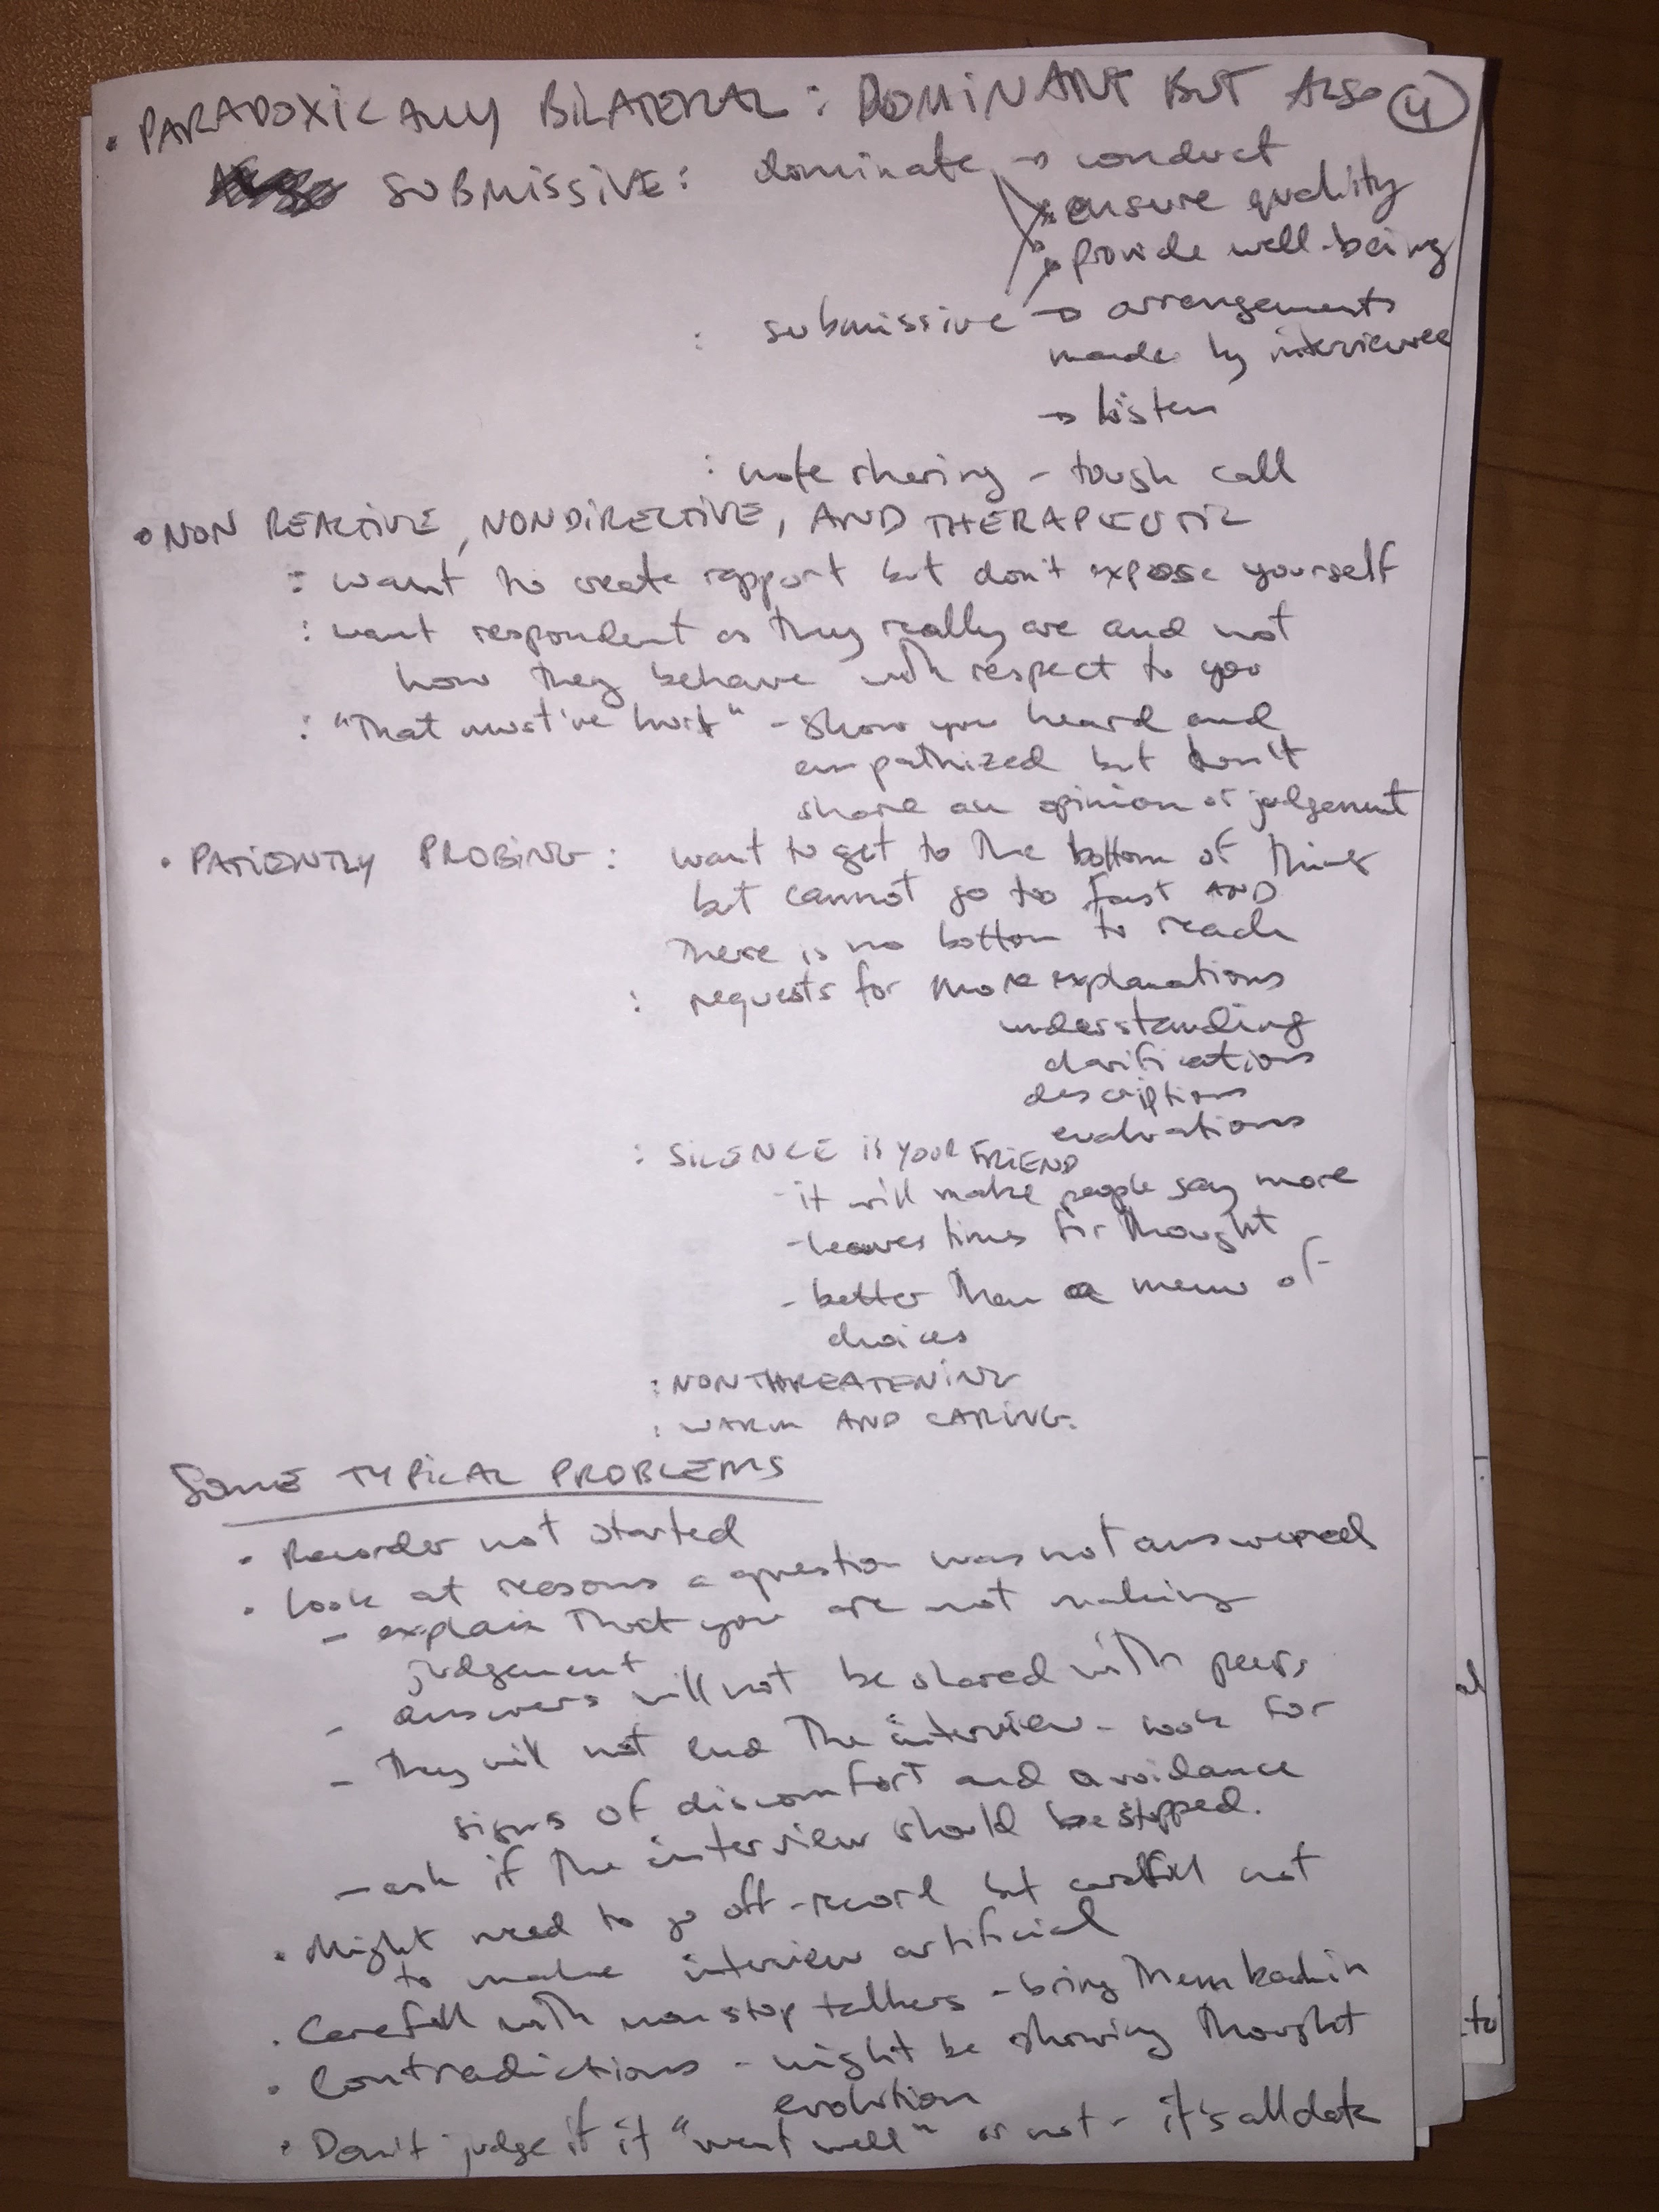 • PARADOXICALLY BILATERAL: DOMINANT BUT ALSO (4)
SUBMISSIVE: dominate → conduct
ensure quality
provide well-being
: submissive → arrangements
made by interviewee
→ listen
: note sharing - tough call
• NON REACTIVE, NONDIRECTIVE, AND THERAPEUTIC
: want to create rapport but don't expose yourself
: want respondent as they really are and not
how they behave with respect to you
: "That must've hurt" - show you heard and
empathized but don't
share an opinion or judgement
• PATIENTLY PROBING: want to get to the bottom of things
but cannot go too fast AND
there is no bottom to reach
: requests for more explanations
understanding
clarifications
descriptions
evaluations
: SILENCE IS YOUR FRIEND
- it will make people say more
- leaves times for thought
- better than a menu of
choices
: NONTHREATENING
: WARM AND CARING.
SOME TYPICAL PROBLEMS
• Recorder not started
• Look at reasons a question was not answered
- explain that you are not making
judgement
- answers will not be shared with peers
- They will not end the interview - look for
signs of discomfort and avoidance
- ask if the interview should be stopped.
• Might need to go off-record but carefull not
to make interview artificial
• Carefull with nonstop talkers - bring them back in
• Contradictions - might be showing thought
evolution
• Don't judge it if "went well" or not - it's all data
al
to